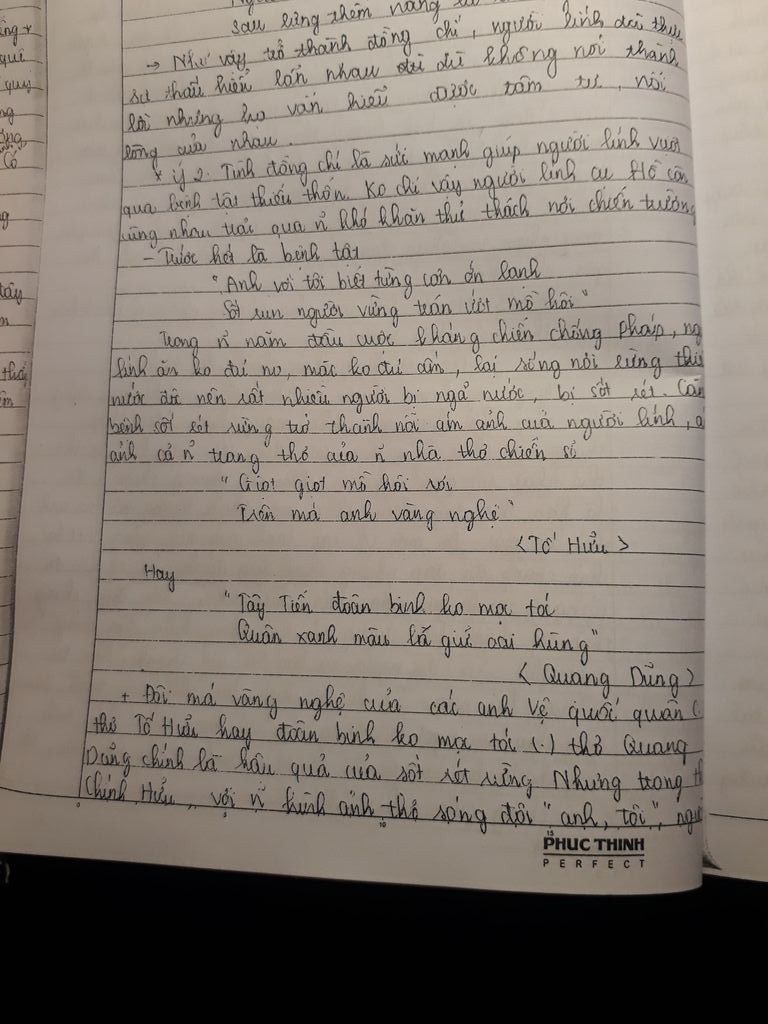 sau lưng thêm nặng
→ Như vậy trở thành đồng chí, người lính đã thực
sự thấu hiểu lẫn nhau dù không nói thành
lời nhưng họ vẫn hiểu được tâm tư, nỗi
lòng của nhau.
* ý 2: Tình đồng chí là sức mạnh giúp người lính vượt
qua bệnh tật thiếu thốn. Ko chỉ vậy người lính cụ Hồ còn
cùng nhau trải qua n̄ khó khăn thử thách nơi chiến trường
- Trước hết là bệnh tật
"Anh với tôi biết từng cơn ớn lạnh
Sốt run người vừng trán ướt mồ hôi"
Trong n̄ năm đầu cuộc kháng chiến chống Pháp, ng
lính ăn ko đủ no, mặc ko đủ ấm, lại sống nơi rừng
nước độc nên rất nhiều người bị ngã nước, bị sốt rét. Căn
bệnh sốt rét rừng trở thành nỗi ám ảnh của người lính, á
ảnh cả n̄ trang thơ của n̄ nhà thơ chiến sĩ
"Giọt giọt mồ hôi rơi
Trên má anh vàng nghệ"
<Tố Hữu>
Hay
"Tây Tiến đoàn binh ko mọc tóc
Quân xanh màu lá giữ oai hùng"
<Quang Dũng>
+ Đôi má vàng nghệ của các anh vệ quốc quân (.
thơ Tố Hữu hay đoàn binh ko mọc tóc (.) thơ Quang
Dũng chính là hậu quả của sốt rét rừng Nhưng trong th
Chính Hữu, với n̄ hình ảnh thơ sóng đôi "anh, tôi",
PHUC THINH
PERFECT